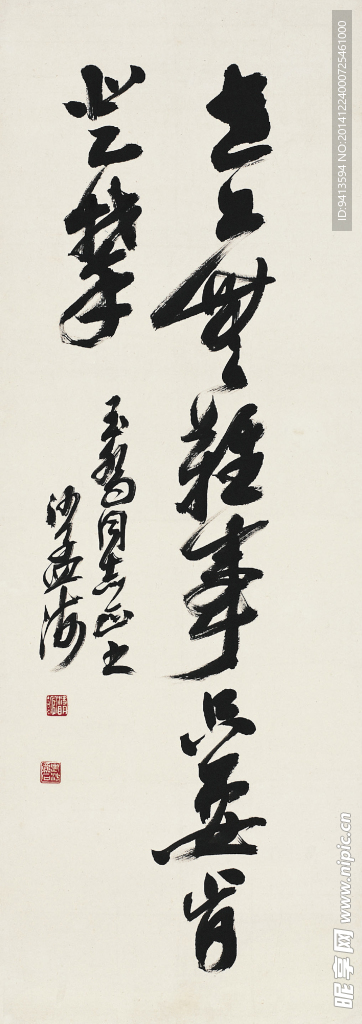 世上無難事只要肯
登攀
玉喬同志正之
沙孟海
ID:9413594 NO:20141224000725461000
昵享网 www.nipic.cn